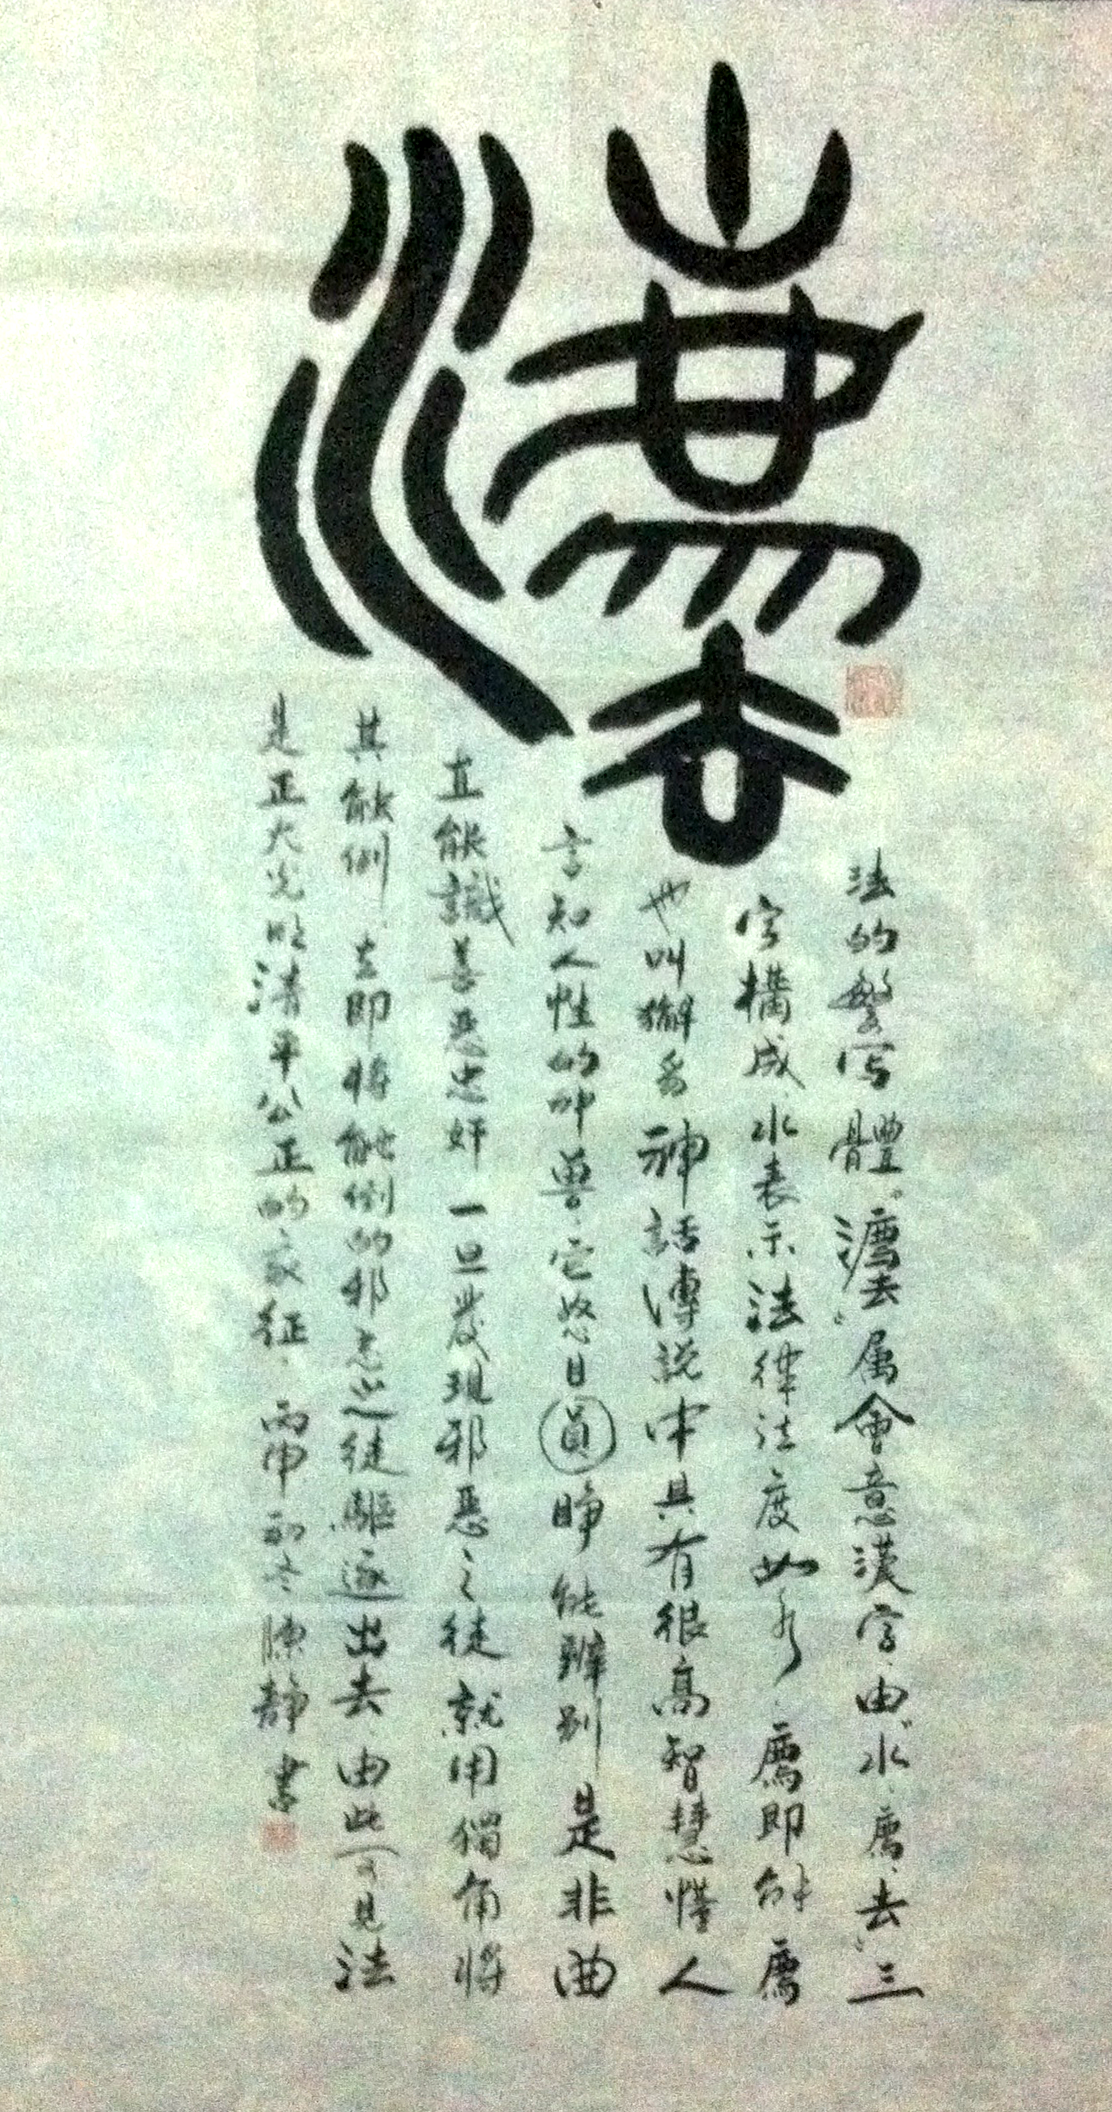 灋
法的繁写體。灋属會意漢字、由水、廌、去、三
字構成、水表示法律法度如水、廌即解廌
也叫獬豸神話傳説中具有很高智慧懂人
言知人性的神獸、它怒目圓睁能辨别是非曲
直能識善惡忠奸一旦發現邪惡之徒就用獨角將
其触倒、立即将触倒的邪惡之徒驅逐出去、由此可見法
是正大光明清平公正的象征、丙申初冬陳静書